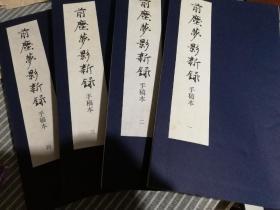 前塵夢影新録
手稿本
四
前塵夢影新録
手稿本
三
前塵夢影新録
手稿本
二
前塵夢影新録
手稿本
一